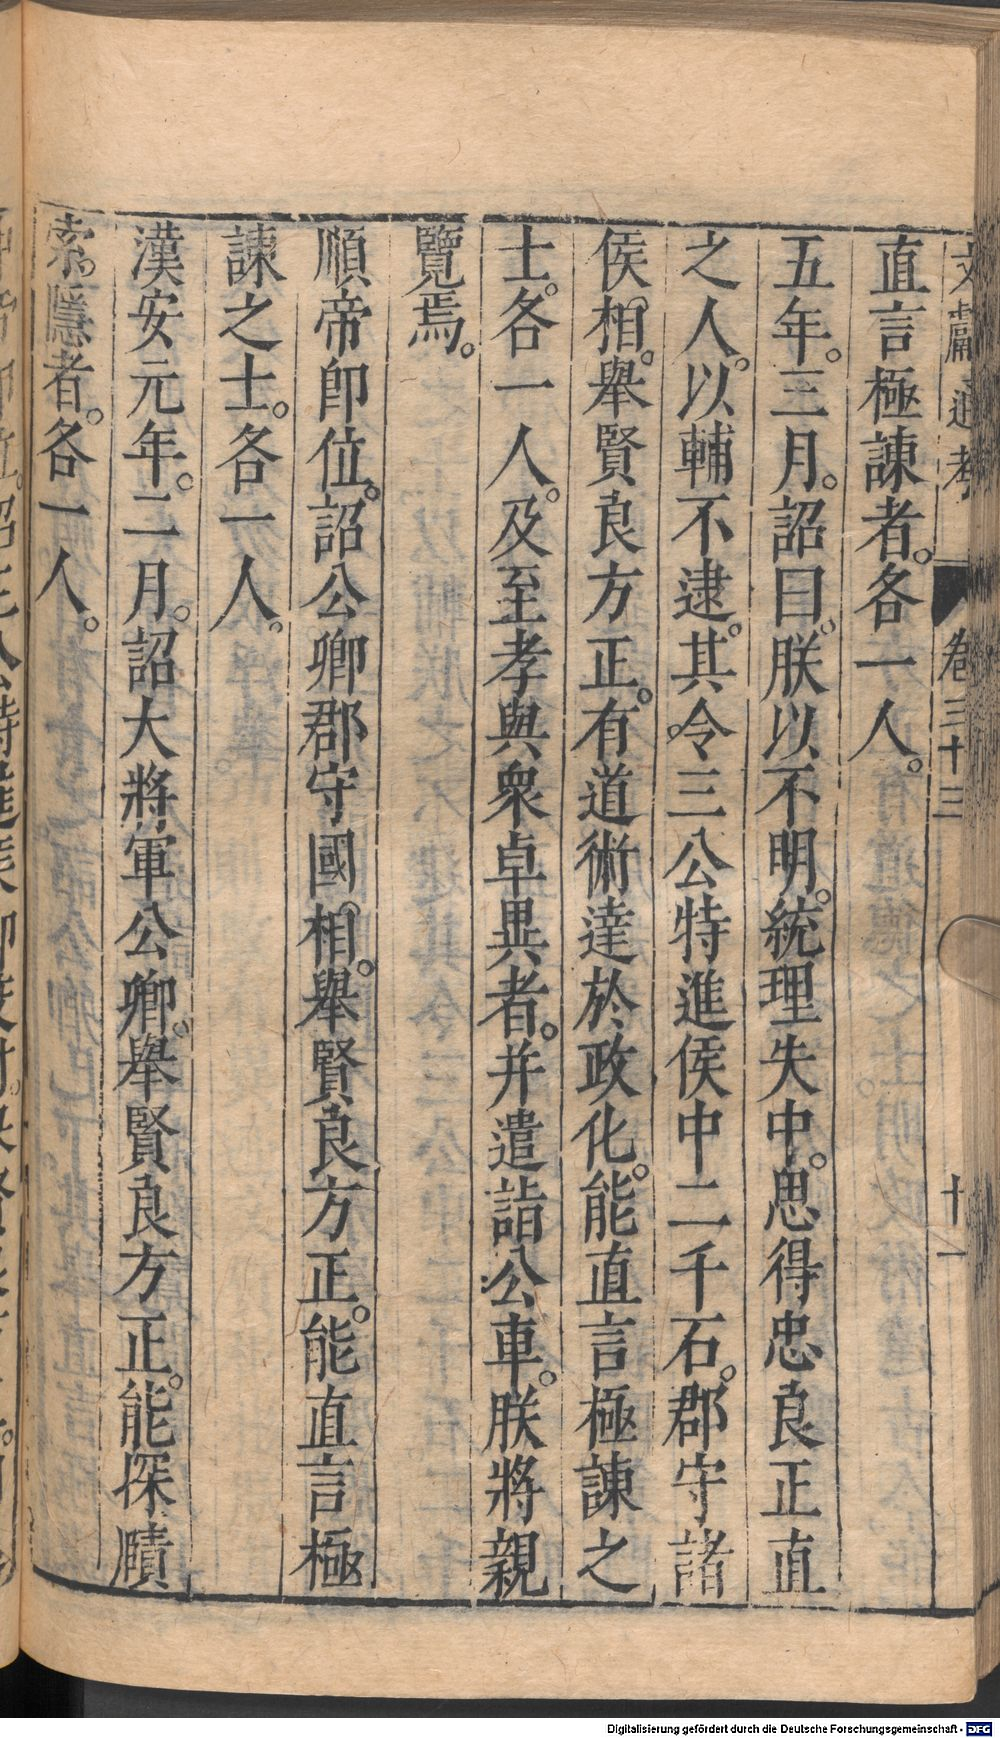 文獻通考　卷三十三　十一
直言極諫者。各一人。
五年。三月。詔曰。朕以不明。統理失中。思得忠良正直
之人。以輔不逮。其令三公特進侯中二千石。郡守諸
侯相。舉賢良方正。有道術達於政化。能直言極諫之
士。各一人。及至孝與衆卓異者。并遣詣公車。朕將親
覽焉。
順帝卽位。詔公卿郡守國相。舉賢良方正。能直言極
諫之士。各一人。
漢安元年。二月。詔大將軍公卿。舉賢良方正。能探賾
索。隱者。各一人。
Digitalisierung gefördert durch die Deutsche Forschungsgemeinschaft - DFG